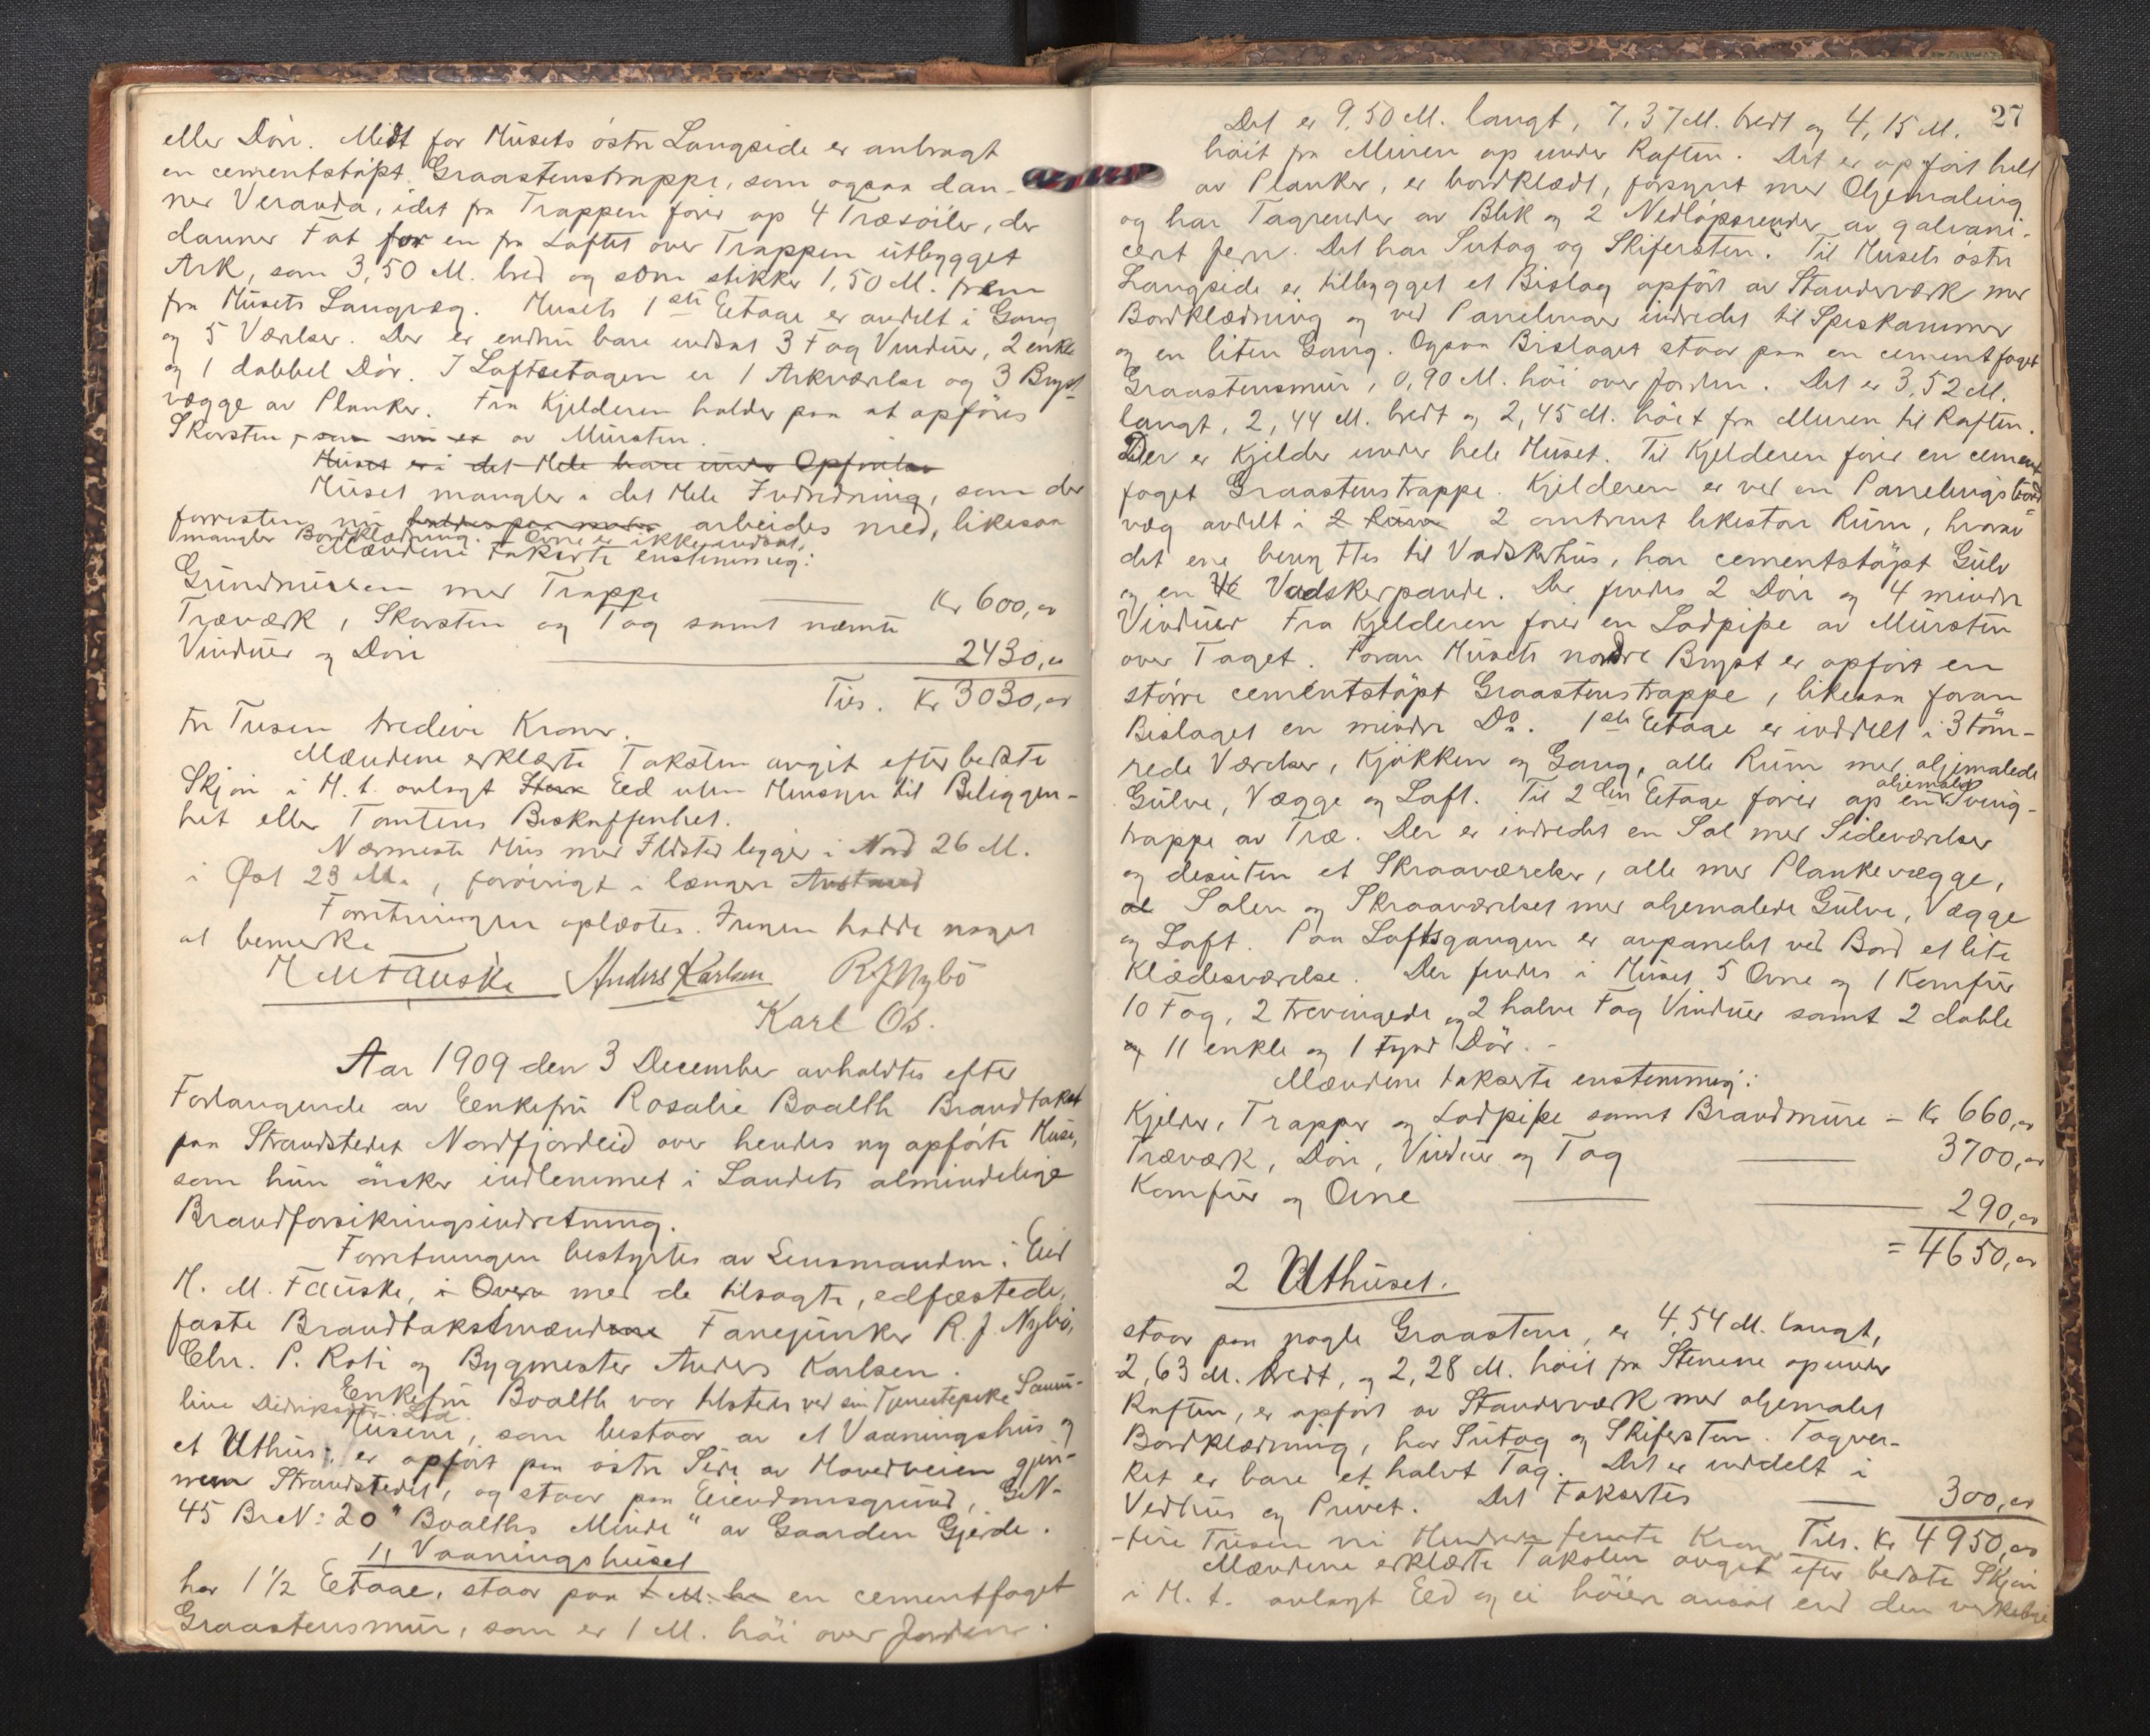 eller Döri. Midt for Husets östre Langside er anbragt
en cementstöpt Graastenstrappe, som ogsaa dan-
ner Veranda, idet fra Trappen förer op 4 Træsöiler, der
danner Fot for en fra Loftet over Trappen utbygget
Ark, som 3,50 M. bred og som stikker 1,50 M. frem
fra Husets Langvæg. Husets 1ste Eetage er avdelt i Gang
og 5 Værelser. Der er endnu bare indsat 3 Fag Vinduer, 2 enkle
og 1 dobbel Dör. I Loftsetagen er 1 Arkværelse og 3 Bryst-
vægge av Planker. Fra Kjelderen holder paa at opföres
Skorsten, som nu er av Mursten.
Huset er i det Hele bare under Opförelse
Huset mangler i det Hele Indredning, som der
forresten nu arbeides med, likesaa
mangler Bordklædning. Ovne er ikke indsat.
Mændene takserte enstemmig:
Grundmuren med Trappe Kr 600,00
Træværk, Skorsten og Tag samt nævnte
Vinduer og Döri 2430,00
Tils. Kr 3030,00
tre Tusen tredive Kroner.
Mændene erklærte Taksten avgit efter bedste
Skjön i H. t. avlagt Eed uten Hensyn til Beliggen-
het eller Tomtens Beskaffenhet.
Nærmeste Hus med Ildsted ligger i Nord 26 M.
i Öst 23 M., forövrigt i længere Avstand
Forretningen oplæstes. Ingen hadde noget
at bemerke
H M Fauske Anders Karlsen R J Nybö
Karl Os.
Aar 1909 den 3 December avholdtes efter
Forlangende av Eenkefru Rosalie Boalth Brandtakst
paa Strandstedet Nordfjordeid over hendes ny opförte Huse,
som hun önsker indlemmet i Landets almindelige
Brandforsikringsindretning.
Forretningen bestyrtes av Lensmanden i Eid
H. M. Fauske, i Over med de tilsagte, edfæstede,
faste Brandtakstmændene Fanejunker R. J. Nybö,
Chr. P. Roti og Bygmester Anders Karlsen.
Enkefru Boalth var tilstede ved sin Tjenestepike Samu-
line Didriksdtr.
Husene, som bestaar av et Vaaningshus og
et Uthus, er opfört paa östre Side av Hovedveien gjen-
nem Strandstedet, og staar paa Eiendomsgrund, G.N-
45 Br.N: 20 "Boalths Minde" av Gaarden Gjerde.
1, Vaaningshuset
har 1 1/2 Etage, staar paa 1 M. hö en cementfuget
Graastensmur, som er 1 M. höi over Jorden.
27
Det er 9,50 M. langt, 7,37 M. bredt og 4,15 M.
höit fra Muren op under Raften. Det er opfört helt
av Planker, er bordklædt, forsynet med Oljemaling
og har Tagrender av Blik og 2 Nedlöpsrender av galvani-
cert Jern. Det har Sutag og Skifersten. Til Husets östre
Langside er tilbygget et Bislag opfört av Standerværk med
Bordklædning og ved Panelinger indredet til Spiskammer
og en liten Gang. Ogsaa Bislaget staar paa en cementfuget
Graastensmur, 0,90 M. höi over Jorden. Det er 3,52 M.
langt, 2,44 M. bredt og 2,45 M. höit fra Muren til Raften.
Der er Kjelder under hele Huset. Til Kjelderen förer en cement
fuget Graastenstrappe. Kjelderen er ved en Panelingsbord
væg avdelt i 2 Rum 2 omtrent likestore Rum, hvorav
det ene benyttes til Vadskerhus, har cementstöpt Gulv
og en Vadskerpande. Der findes 2 Döri og 4 mindre
Vinduer Fra Kjelderen förer en Lodpipe av Mursten
over Taget. Foran Husets nordre Bryst er opfört en
större cementstöpt Graastenstrappe, likesaa foran
Bislaget en mindre Do. 1ste Eetage er inddelt i 3 töm-
rede Værelser, Kjökken og Gang, alle Rum med oljemalede
Gulve, Vægge og Loft. Til 2den Eetage förer op en oljemalet Sving-
trappe av Træ. Der er indredet en Sal med Sideværelser
og desuten et Skraaværelse, alle med Plankevægge,
Salen og Skraaværelset med oljemalede Gulve, Vægge
og Loft. Paa Loftsgangen er avpanelet ved Bord et lite
Klædesværelse. Der findes i Huset 5 Ovne og 1 Komfur
10 Fag, 2 trevingede og 2 halve Fag Vinduer samt 2 doble
og 11 enkle og 1 Fyld Dör. -
Mændene takserte enstemmig:
Kjelder, Trapper og Lodpipe samt Brandmure - Kr 660,00
Træværk, Döri, Vinduer og Tag 3700,00
Komfur og Ovne 290,00
= 4650,00
2 Uthuset.
staar paa nogle Graastene, er 4,54 M. langt,
2,63 M. bredt, og 2,28 M. höit fra Stenene op under
Raften, er opfört av Standerværk med oljemalet
Bordklædning, har Sutag og Skifersten. Tagver-
ket er bare et halvt Tag. Det er inddelt i
Vedhus og Privet. Det takseres 300,00
Tils. Kr 4950,00
-fire Tusen ni Hundrede femti Kroner
Mændene erklærte Taksten avgit efter bedste Skjön
i H. t. avlagt Eed og ei höiere ansat end den virkelige